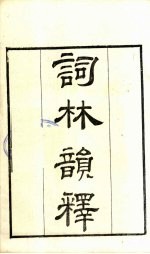 詞林韻釋